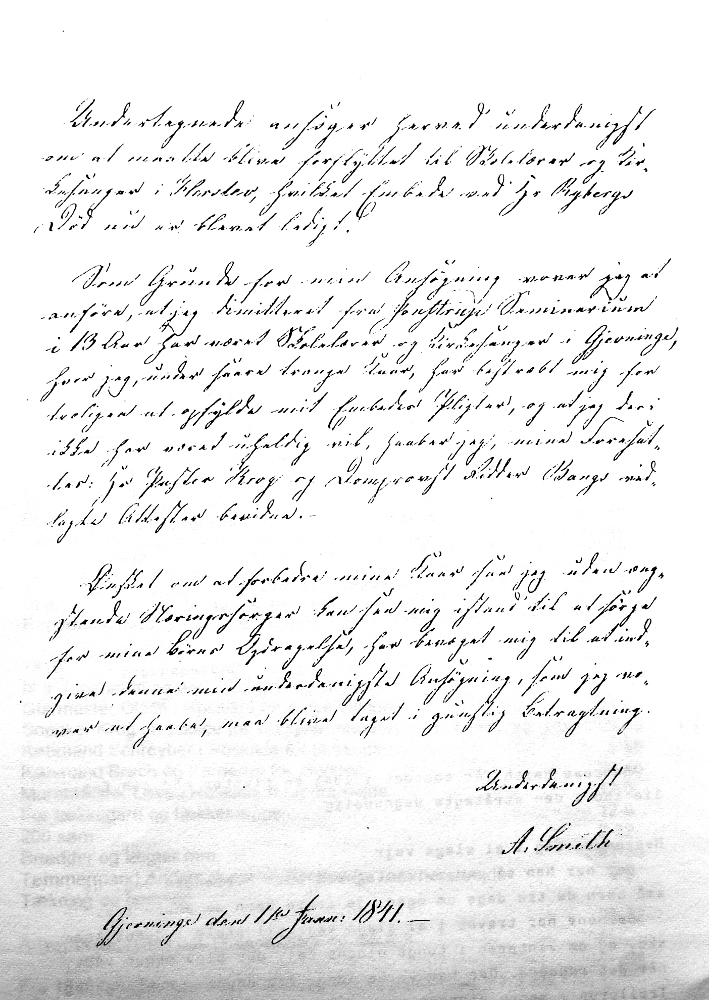 Undertegnede ansøger herved underdanigst
om at maatte blive forflyttet til Skolelærer og Kir-
kesanger i Flerslev, hvilket Embede ved Hr Rybergs
Død nu er blevet ledigt.
Som Grunde for min Ansøgning vover jeg at
anføre, at jeg dimitteret fra Jonstrup Seminarium
i 13 Aar har været Skolelærer og Kirkesanger i Gjevninge,
hvor jeg, under saare trange Kaar, har bestræbt mig for
troligen at opfylde mit Embedes Pligter, og at jeg deri
ikke har været uheldig vil, haaber jeg, mine Foresat-
tes: Hr Pastor Krog og Domprovst Ridder Bangs ved-
lagte Attester bevidne.-
Ønsket om at forbedre mine Kaar saa jeg uden æng-
stende Næringssorger kan see mig istand til at sørge
for mine Børns Opdragelse, har bevæget mig til at ind-
give denne min underdanigste Ansøgning, som jeg vo-
ver at haabe, maa blive taget i gunstig Betragtning.
Underdanigst
A. Smith
Gjevninge den 11te Janr: 1841.—